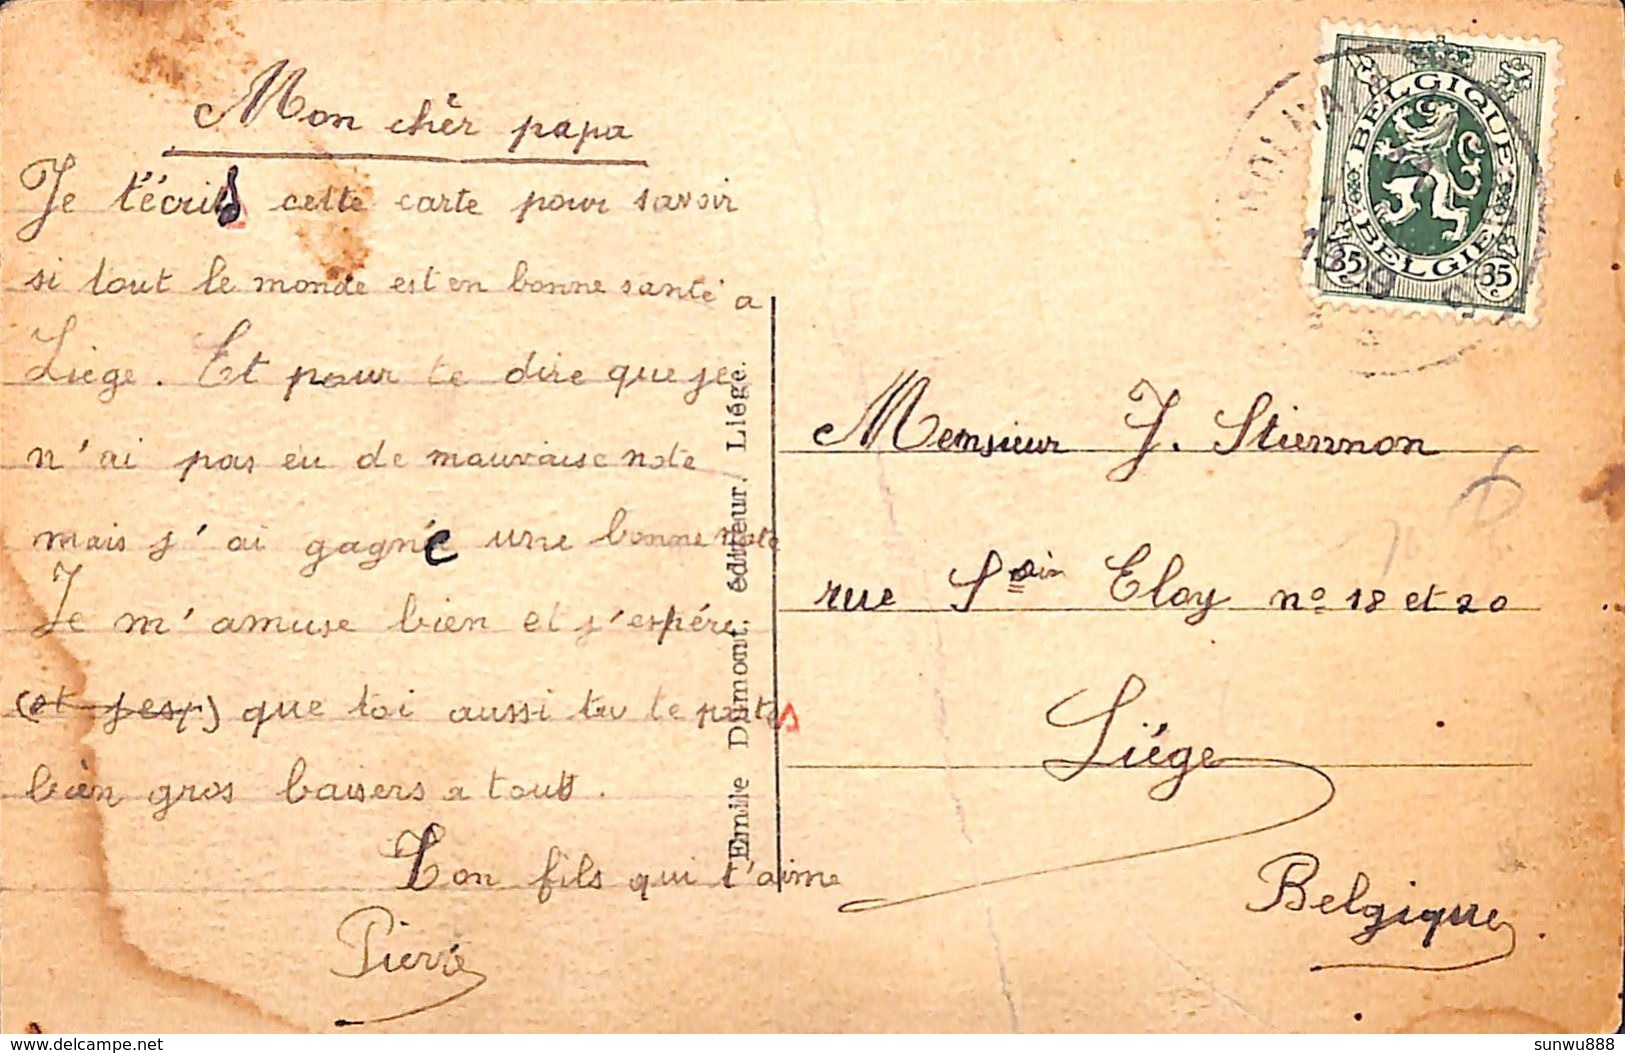 Mon chèr papa
Je t'écris cette carte pour savoir
si tout le monde est en bonne santé a
Liège. Et pour te dire que je
n'ai pas eu de mauvaise note
mais j'ai gagné une bonne note
Je m'amuse bien et j'espére
(et jesp) que toi aussi tu te portes
bien gros baisers a tous.
Ton fils qui t'aime
Pierre
Emile Dumont, éditeur, Liége.
BELGIQUE
BELGIE
35 c
35 c
1929
Monsieur J. Stiennon
rue St Eloy no 18 et 20
Liége
Belgique
www.delcampe.net
sunwu888